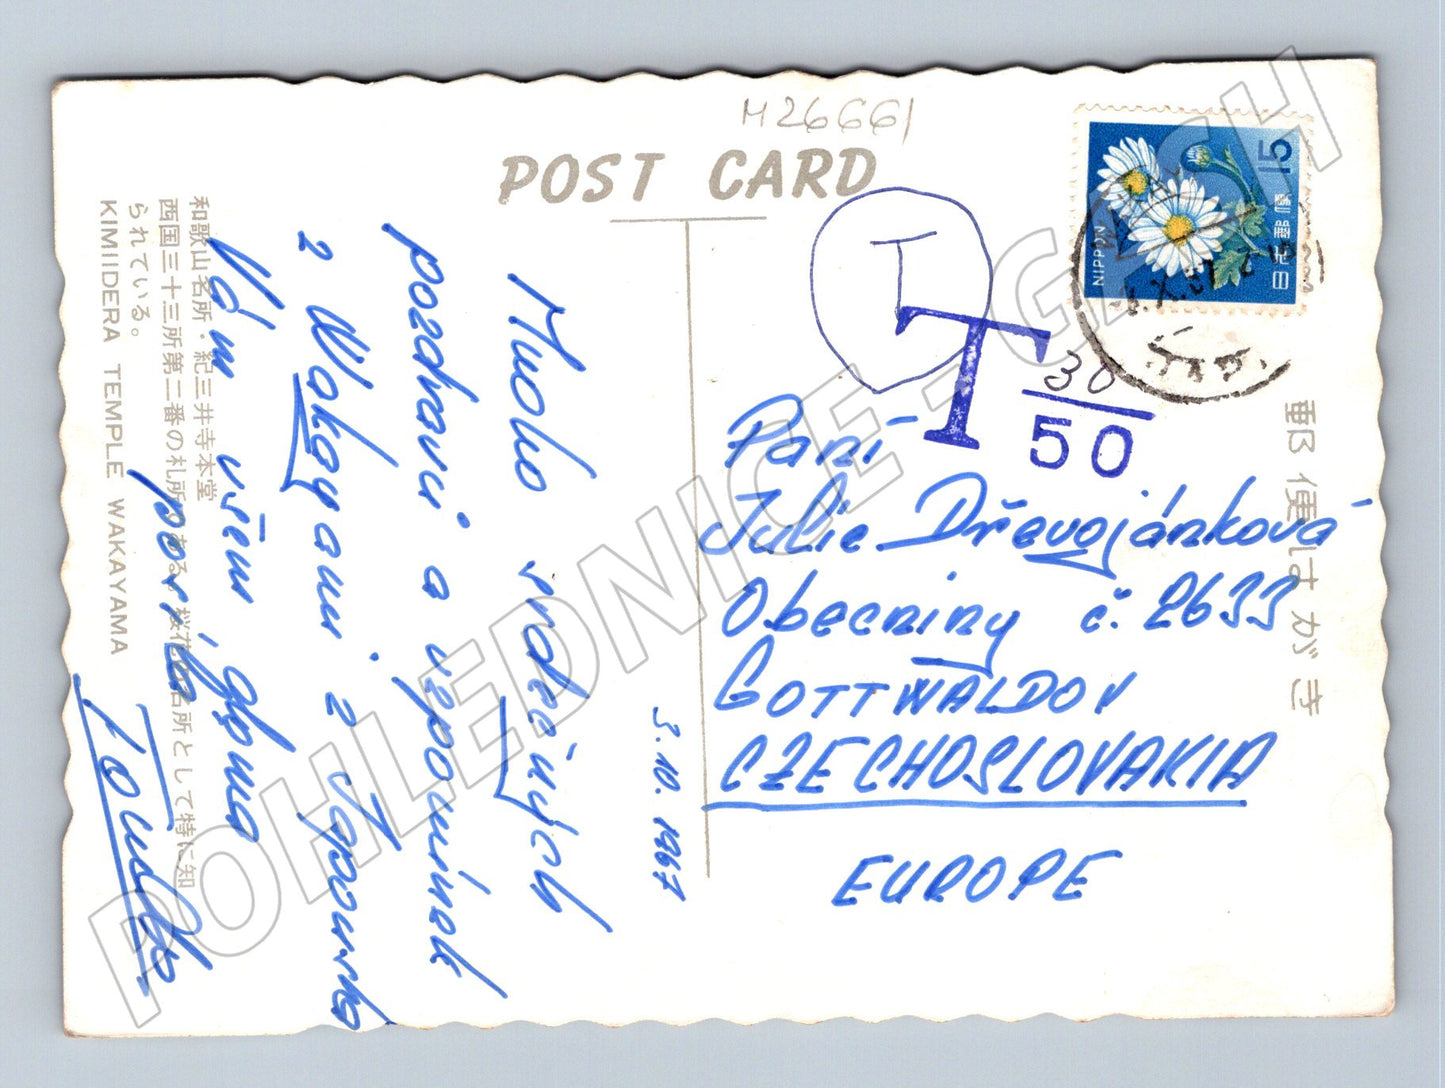 M26661
POST CARD
和歌山名所・紀三井寺本堂
西国三十三所第二番の札所である桜花の名所として特に知
られている。
KIMIIDERA TEMPLE WAKAYAMA
Mnoho srdečných
pozdravů a vzpomínek
z Wakayami z Japonska
Vám všem
posílá
Toulka
3.10.1967
T
T
30
50
15
NIPPON
日本郵便
郵便はがき
Paní
Julie Dřevojánková
Obeciny č. 2633
GOTTWALDOV
CZECHOSLOVAKIA
EUROPE
POHLEDNICE - GASH